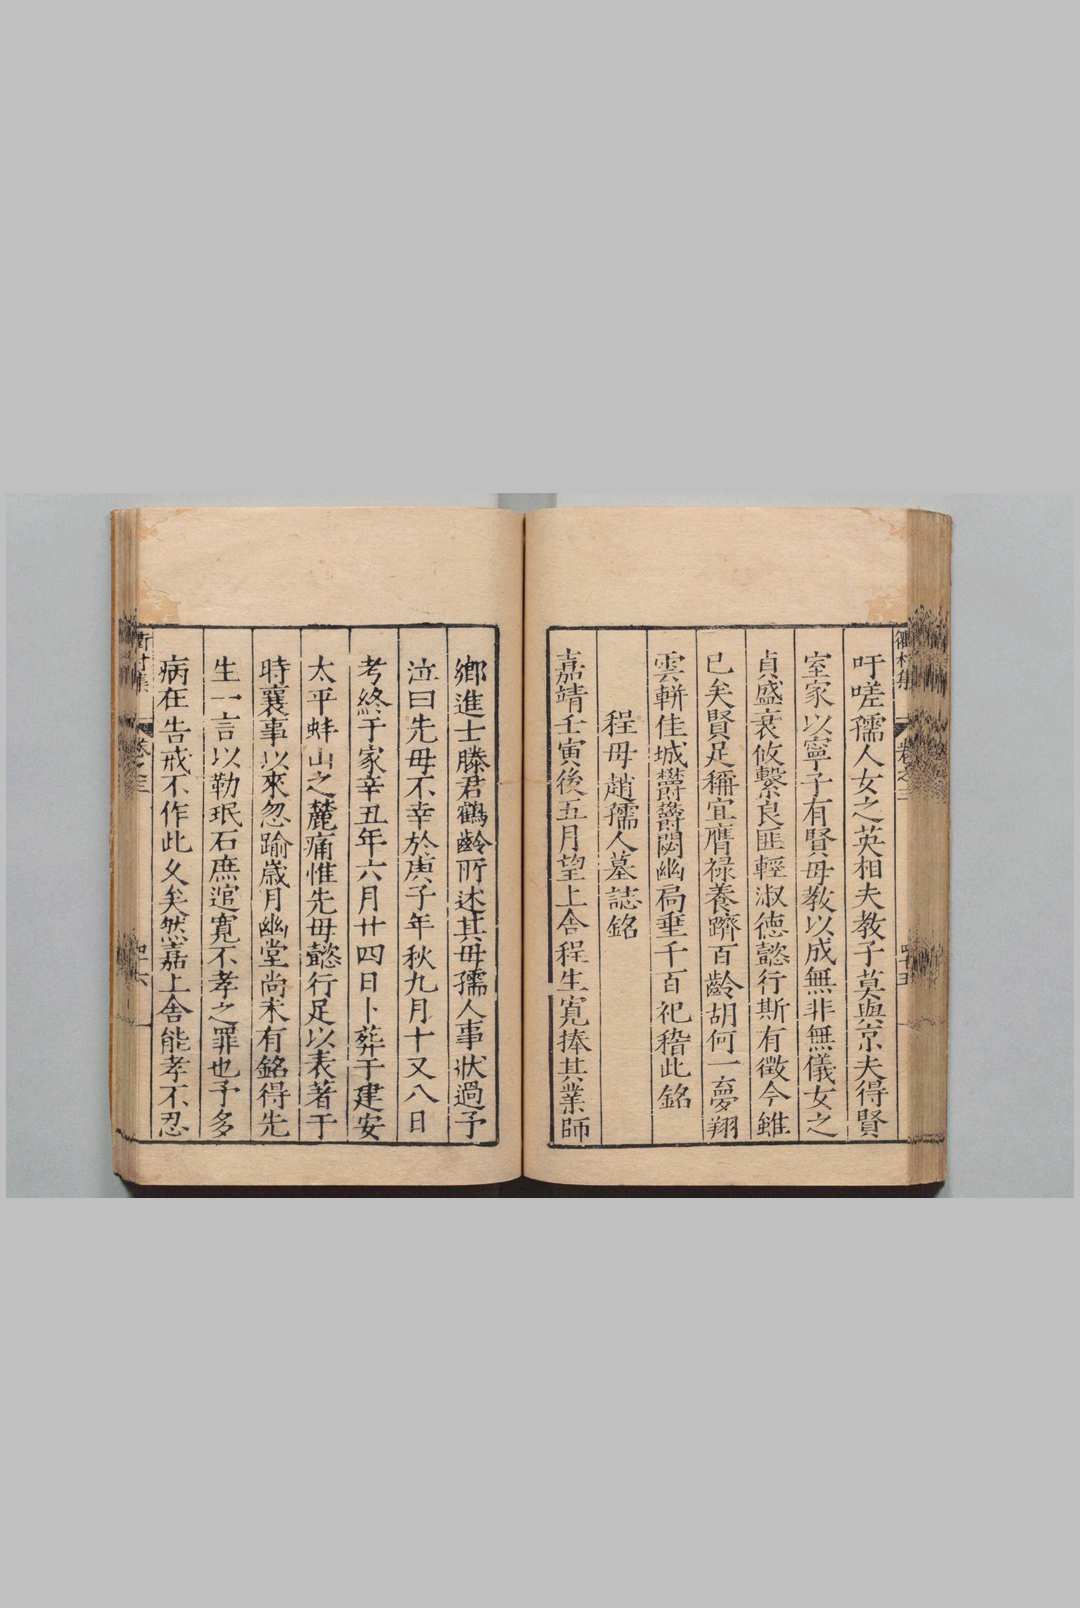 吁嗟孺人女之英相夫教子莫與京夫得賢
室家以寧子有賢母教以成無非無儀女之
貞盛衰攸繫良匪輕淑德懿行斯有徵今雖
已矣賢足稱宜膺祿養躋百齡胡何一夢翔
雲軿佳城欝欝閟幽局垂千百祀稽此銘
程母趙孺人墓誌銘
嘉靖壬寅後五月望上舍程生寬捧其業師
鄉進士滕君鶴齡所述其母孺人事狀過予
泣曰先母不幸於庚子年秋九月十又八日
考終于家辛丑年六月廿四日卜葬于建安
太平蚌山之麓痛惟先母懿行足以表著于
時襄事以來忽踰歲月幽堂尚未有銘得先
生一言以勒珉石庶逭寬不孝之罪也予多
病在告戒不作此久矣然嘉上舍能孝不忍
卷之三
四十六